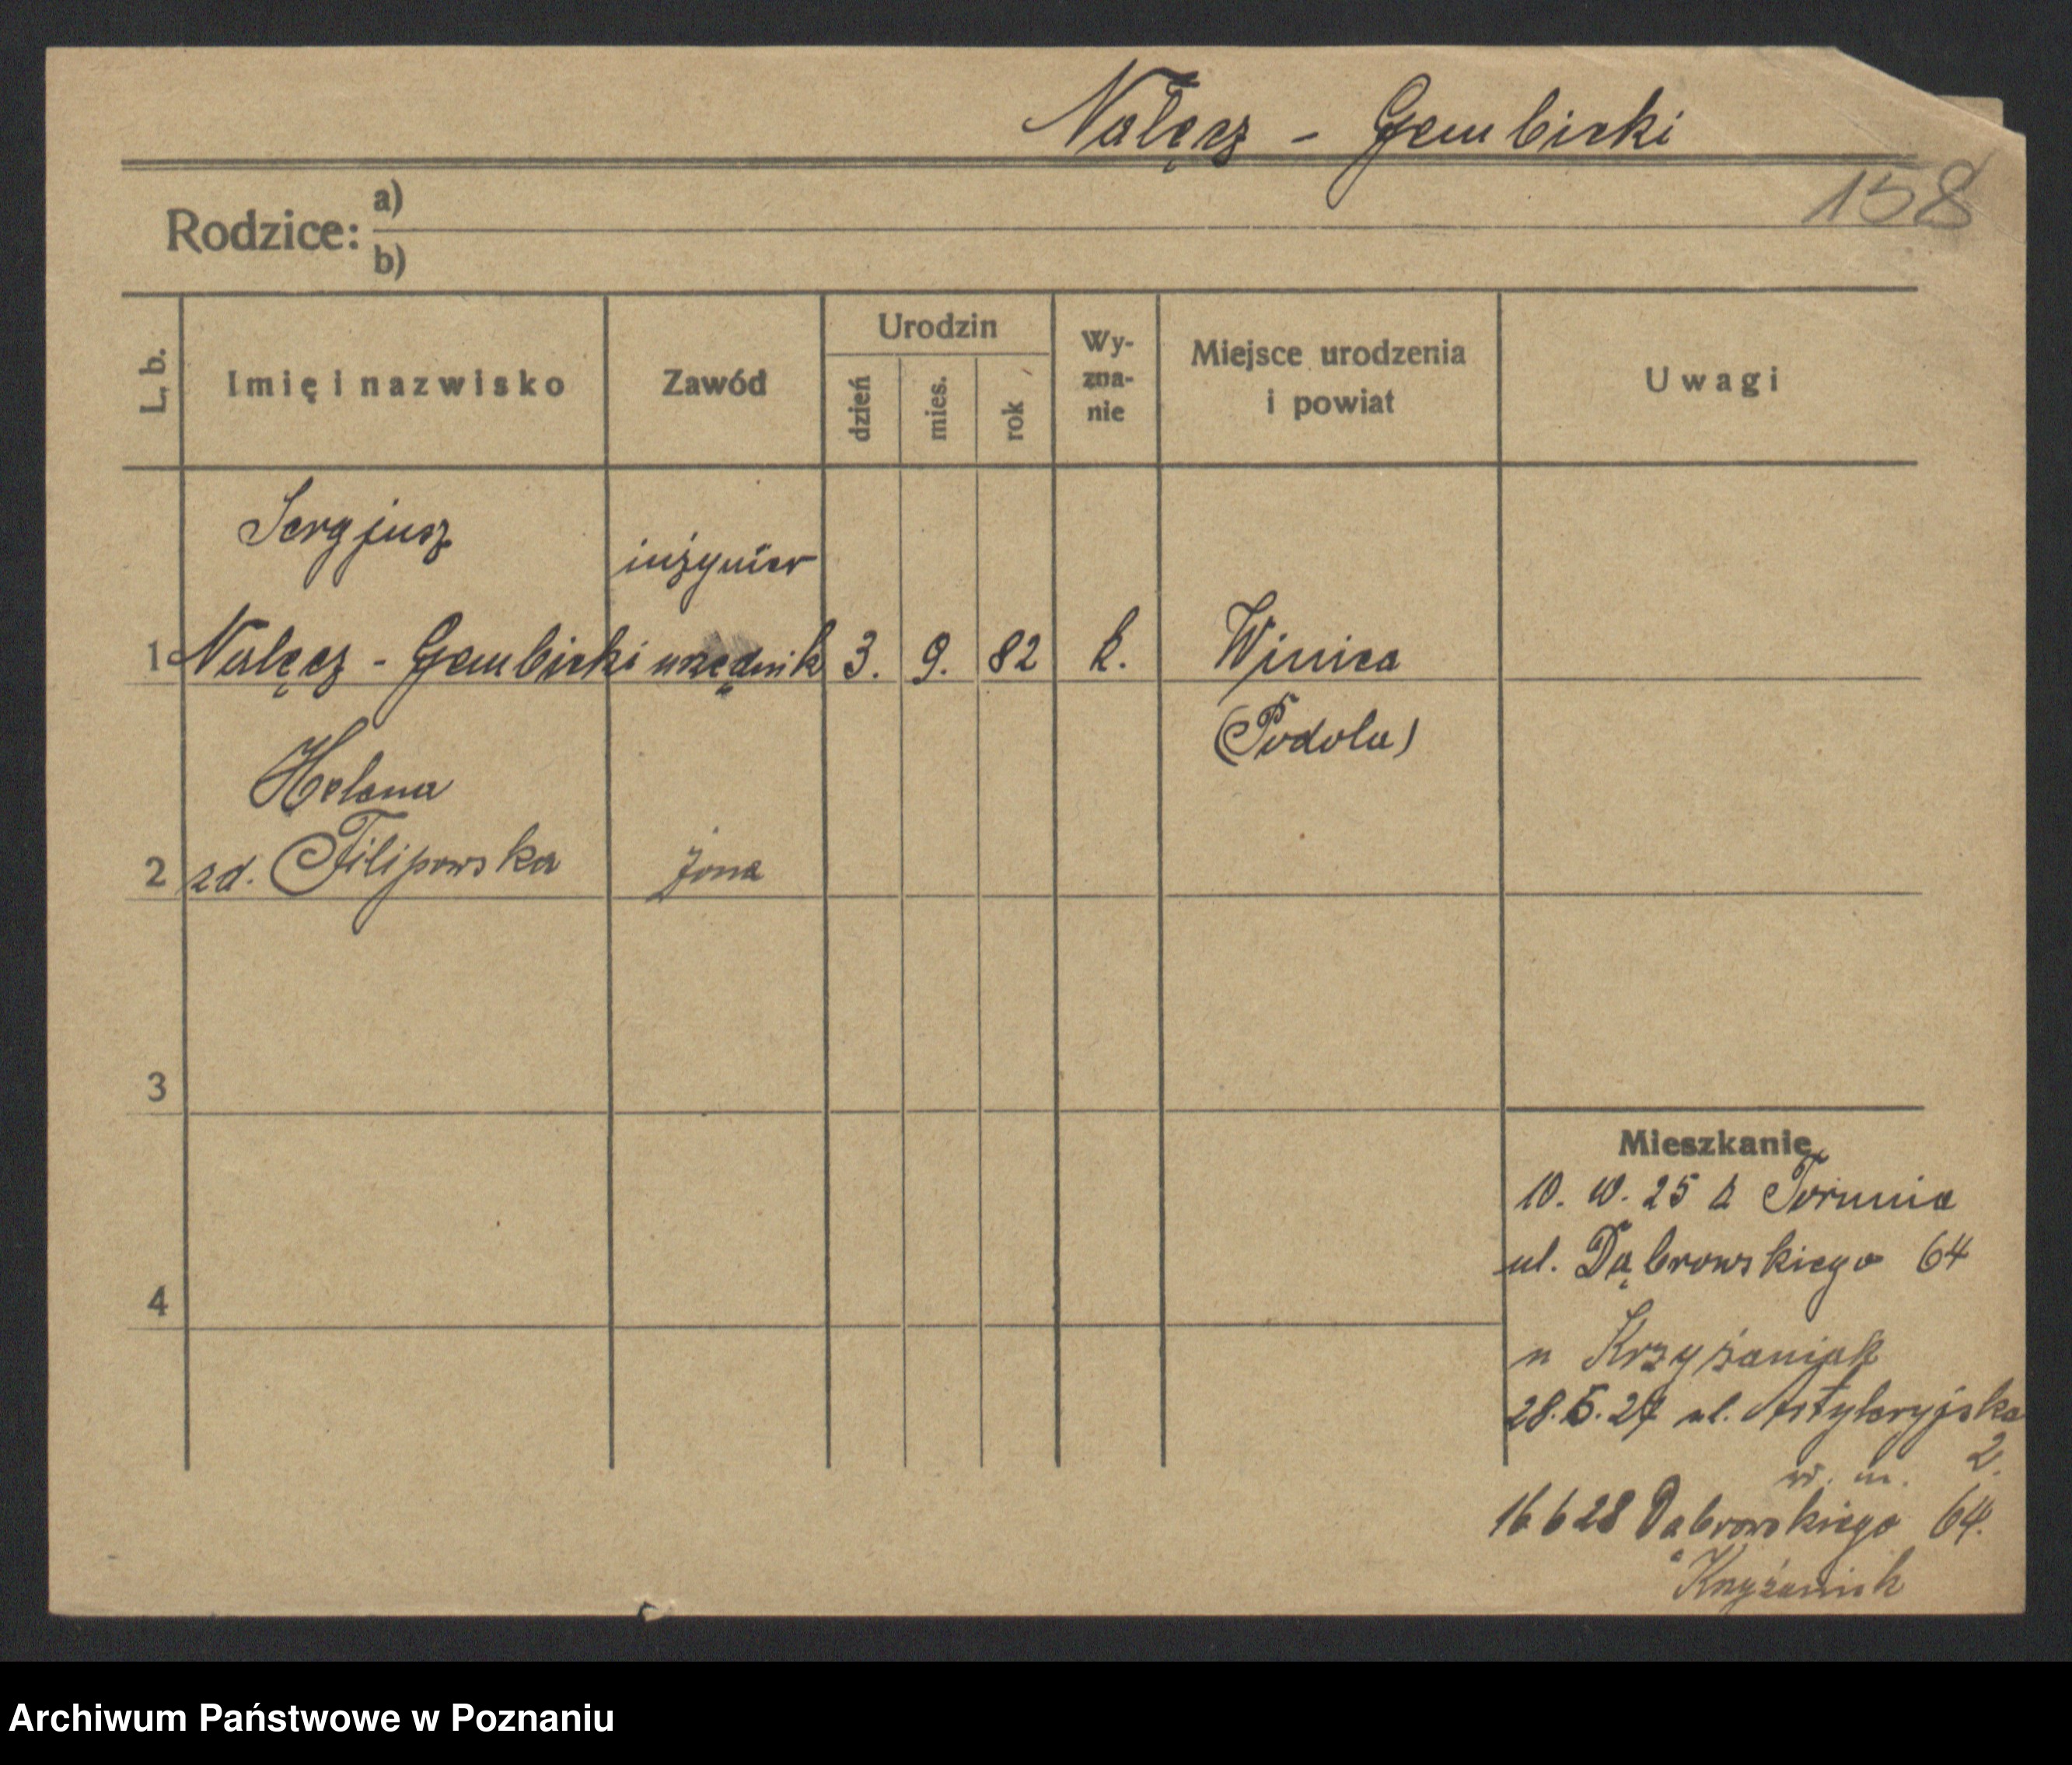 Nałęcz - Gembicki
158
Rodzice: a)
b)
L. b.
Imię i nazwisko
Zawód
Urodzin
dzień
mies.
rok
Wy-
zna-
nie
Miejsce urodzenia
i powiat
Uwagi
Sergjusz
inżynier
1 Nalęcz - Gembicki urzędnik 3. 9. 82 k. Winica
(Podole)
Helena
2 zd. Filipowska żona
3
4
Mieszkanie
10. 10. 25 z Torunia
ul. Dąbrowskiego 64
u Krzyżaniak
28. 5. 27 ul. Artyleryjska
2.
w. m.
16 6 28 Dąbrowskiego 64.
Krzyżaniak
Archiwum Państwowe w Poznaniu